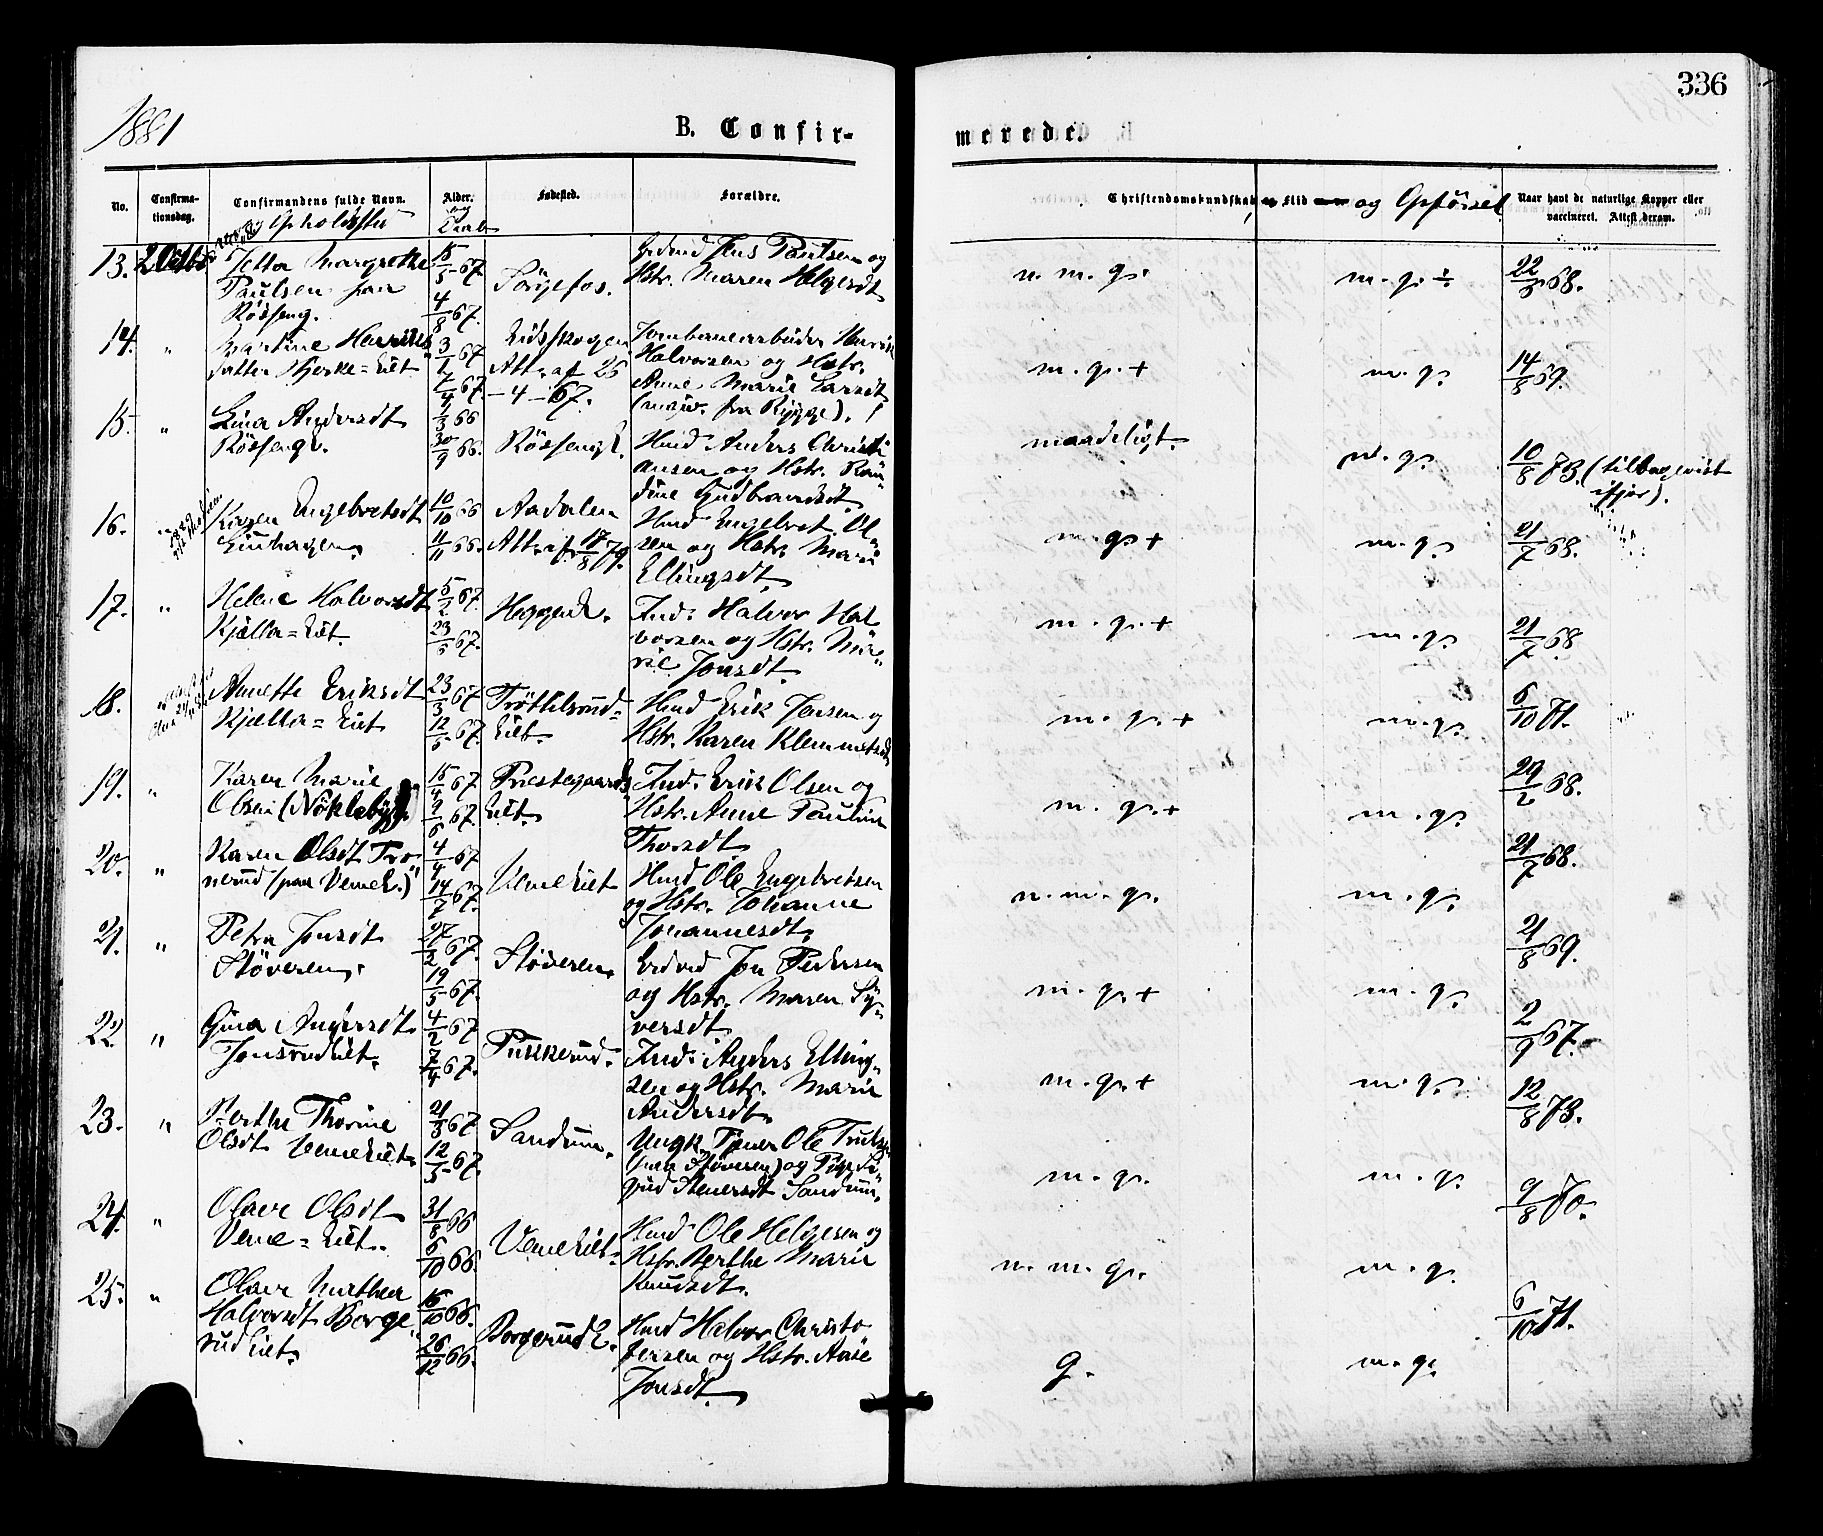 1881
336
B. Confir-
merede.
No.
Confirma-
tionsdag.
Confirmandens fulde Navn.
og Opholdssted
Alder.
og
Daab
Fødested.
Forældre.
Christendomskundskab
Flid
og Opførsel
Naar havt de naturlige Kopper eller
vaccineret. Attest derom.
13. 2 Octbr
Jetta Margrethe
Paulsen paa
Rösseng.
15/5 67.
4/8 67.
Sörgefos.
Jens Paulsen og
Hstr. Maren Helgesdt
n. m. g.
m. g. ÷
68.
14. "
Martine Henriks
datter Bjerke=Eiet
Att. af 26
- 4 - 67.
Jernbanearbeider Henrik
Halvorsen og Hstr.
Anne Marie Larsdt
(fra Rygge).
m. g. +
m. g.
14/8 69.
15. "
Lina Andersdt
Rössenge.
1/3 66
30/9 66.
Rössenge.
Hmd Anders Christi
ansen og Hstr. Ran
dine Gudbrandsdt.
maadeligt.
m. g.
10/8 73. (tilbagevist
ifjor).
16. "
Karen Engebretsdt
Linhagen.
10/10 66
11/11 66.
Aadalen
Att. af 17/8 79.
Hmd Engebret Ol
sen og Hstr. Mari
Ellingsdt.
m. g. +
m. g.
21/7 68.
17. "
Helene Halvorsdt
Kjælla=Eiet.
5/2 67.
23/5 67.
Heggen.
Ind. Halvor Hal
vorsen og Hstr. Ma
rie Jonsdt.
m. g. +
m. g.
21/7 68
18.
Anette Eriksdt
Kjælla=Eiet
23/3 67
12/5 67.
Tröttelsrud=
Eiet.
Hmd Erik Jonsen og
Hstr. Karen Klemmetsdt
m. g. +
m. g.
6/10 71.
19. "
Karen Marie
Olsen (Nöklebye.)
15/4 67
9/6 67.
Præstegaards
Eiet.
Ind. Erik Olsen og
Hstr. Anne Pauline
Thorsdt
m. g. +
m. g.
29/2 68.
20. "
Karen Olsdt Tro
nerud (paa Veme E.)
4/4 67
14/7 67.
Veme Eiet
Hmd Ole Engebretsen
og Hstr. Johanne
Johannesdt.
n. m. g.
m. g.
21/7 68.
21. "
Petra Jonsdt
Stöveren.
27/2 67.
19/5 67.
Stöveren.
Jon Pedersen
og Hstr. Maren Sy
versdt
m. g. +
m. g.
21/8 69.
22. "
Gina Andersdt
Jonsrudeiet.
4/2 67
7/4 67.
Pukkerud.
Ind. Anders Elling
sen og Hstr. Marie
Andersdt.
m. g. +
m. g.
2/9 67.
23. "
Berthe Thorine
Olsdt Veme Eiet.
21/3 67
12/5 67.
Sandum.
Ungk. Tjener Ole
(paa Stöveren) og Pige Si
grid Stenersdt Sandum.
m. g.
m. g.
12/8 73.
24. "
Olava Olsdt
Veme=Eiet.
31/8 66
6/10 66
Veme Eiet.
Hmd Ole Helgesen og
Hstr. Berthe Marie
Knudsdt.
n. m. g.
m. g.
9/8 70.
25. "
Olava Mathea
Halvorsdt Borge
rud Eiet.
15/10 66.
26/12 66.
Borgerud E.
Hmd Halvor Christo
fersen og Hstr. Aase
Jonsdt.
g.
m. g.
6/10 71.